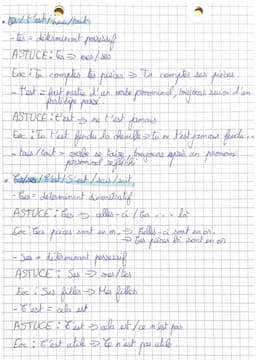 - tes = déterminant possessif
ASTUCE : tes => mes/ses
Ex : tu comptes tes pièces => Tu comptes ses pièces
- t'est = fait partie d'un verbe pronominal, toujours suivi d'un
participe passé.
ASTUCE : t'est => ne t'est jamais
Ex : Tu t'est fendu la cheville => tu ne t'est jamais fendu..
- tais/tait = verbe se taire, toujours après un pronom
personnel réfléchi
• Ces/ses/C'est/S'est/sais/sait
- Ces = déterminant démonstratif
ASTUCE : Ces => celles-ci / Ces ... là
Ex : Ces pièces sont en or. => Celles-ci sont en or.
=> Ces pièces là sont en or
- Ses = déterminant possessif
ASTUCE : Ses => mes/tes
Ex : Ses filles => Mes filles
- C'est = cela est
ASTUCE : C'est => cela est / ce n'est pas
Ex : C'est utile => Ce n'est pas utile